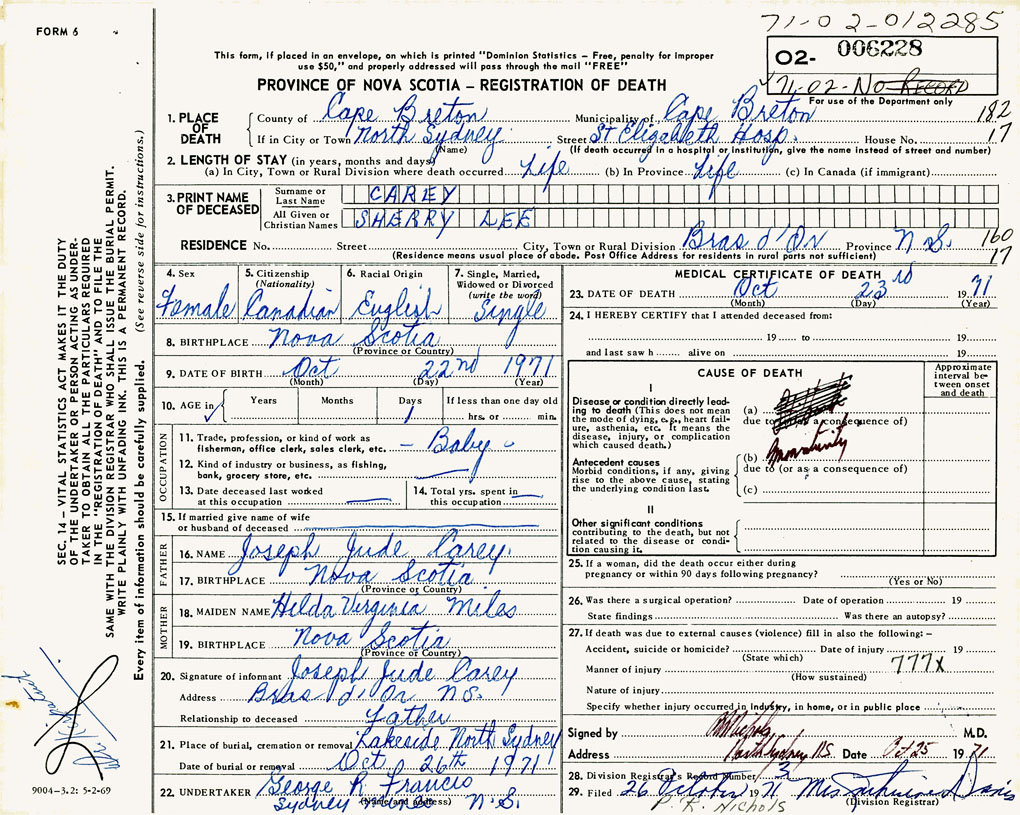 FORM 6
71-02-012285
02- 006228
71-02-NO RECORD
This form, if placed in an envelope, on which is printed "Dominion Statistics — Free, penalty for improper
use $50," and properly addressed will pass through the mail "FREE"
PROVINCE OF NOVA SCOTIA — REGISTRATION OF DEATH
For use of the Department only
1. PLACE OF DEATH
County of Cape Breton Municipality of Cape Breton 182
If in City or Town North Sydney Street St Elizabeth Hosp. House No. 17
(Name) (If death occurred in a hospital or institution, give the name instead of street and number)
2. LENGTH OF STAY (in years, months and days)
(a) In City, Town or Rural Division where death occurred Life (b) In Province Life (c) In Canada (if immigrant)
3. PRINT NAME OF DECEASED
Surname or Last Name CAREY
All Given or Christian Names SHERRY LEE
RESIDENCE No. Street City, Town or Rural Division Bras d'Or Province N.S. 160
(Residence means usual place of abode. Post Office Address for residents in rural parts not sufficient) 17
4. Sex Female
5. Citizenship (Nationality) Canadian
6. Racial Origin English
7. Single, Married, Widowed or Divorced (write the word) Single
8. BIRTHPLACE Nova Scotia
(Province or Country)
9. DATE OF BIRTH Oct 22nd 1971
(Month) (Day) (Year)
10. AGE in Years Months Days 1 If less than one day old
hrs. or min.
OCCUPATION
11. Trade, profession, or kind of work as
fisherman, office clerk, sales clerk, etc. — Baby
12. Kind of industry or business, as fishing,
bank, grocery store, etc.
13. Date deceased last worked
at this occupation
14. Total yrs. spent in
this occupation
15. If married give name of wife
or husband of deceased
FATHER
16. NAME Joseph Jude Carey.
17. BIRTHPLACE Nova Scotia
(Province or Country)
MOTHER
18. MAIDEN NAME Hilda Virginia Miles
19. BIRTHPLACE Nova Scotia
(Province or Country)
20. Signature of informant Joseph Jude Carey
Address Bras d'Or N.S.
Relationship to deceased Father
21. Place of burial, cremation or removal Lakeside North Sydney
Date of burial or removal Oct 26th 1971
22. UNDERTAKER George R. Francis
Sydney N.S.
(Name and address)
MEDICAL CERTIFICATE OF DEATH
23. DATE OF DEATH Oct 23rd 1971
(Month) (Day) (Year)
24. I HEREBY CERTIFY that I attended deceased from:
19 to 19
and last saw h alive on 19
CAUSE OF DEATH
Approximate interval between onset and death
I
Disease or condition directly lead-
ing to death (This does not mean
the mode of dying, e.g., heart fail-
ure, asthenia, etc. It means the
disease, injury, or complication
which caused death.)
(a)
due to (or as a consequence of)
Antecedent causes
Morbid conditions, if any, giving
rise to the above cause, stating
the underlying condition last.
(b)
due to (or as a consequence of)
(c)
II
Other significant conditions
contributing to the death, but not
related to the disease or condi-
tion causing it.
25. If a woman, did the death occur either during
pregnancy or within 90 days following pregnancy?
(Yes or No)
26. Was there a surgical operation? Date of operation 19
State findings Was there an autopsy?
27. If death was due to external causes (violence) fill in also the following: —
Accident, suicide or homicide? Date of injury 19
(State which)
Manner of injury 777X
(How sustained)
Nature of injury
Specify whether injury occurred in Industry, in home, or in public place
Signed by M.D.
Address North Sydney N.S. Date Oct 25 1971
28. Division Registrar's Record Number
29. Filed 26 October 1971
(Division Registrar)
P. R. NICHOLS
SEC. 14 — VITAL STATISTICS ACT MAKES IT THE DUTY
OF THE UNDERTAKER OR PERSON ACTING AS UNDER-
TAKER TO OBTAIN ALL THE PARTICULARS REQUIRED
IN THE "REGISTRATION OF DEATH" AND TO FILE THE
SAME WITH THE DIVISION REGISTRAR WHO SHALL ISSUE THE BURIAL PERMIT.
WRITE PLAINLY WITH UNFADING INK. THIS IS A PERMANENT RECORD.
Every item of information should be carefully supplied. (See reverse side for instructions.)
9004-3.2: 5-2-69